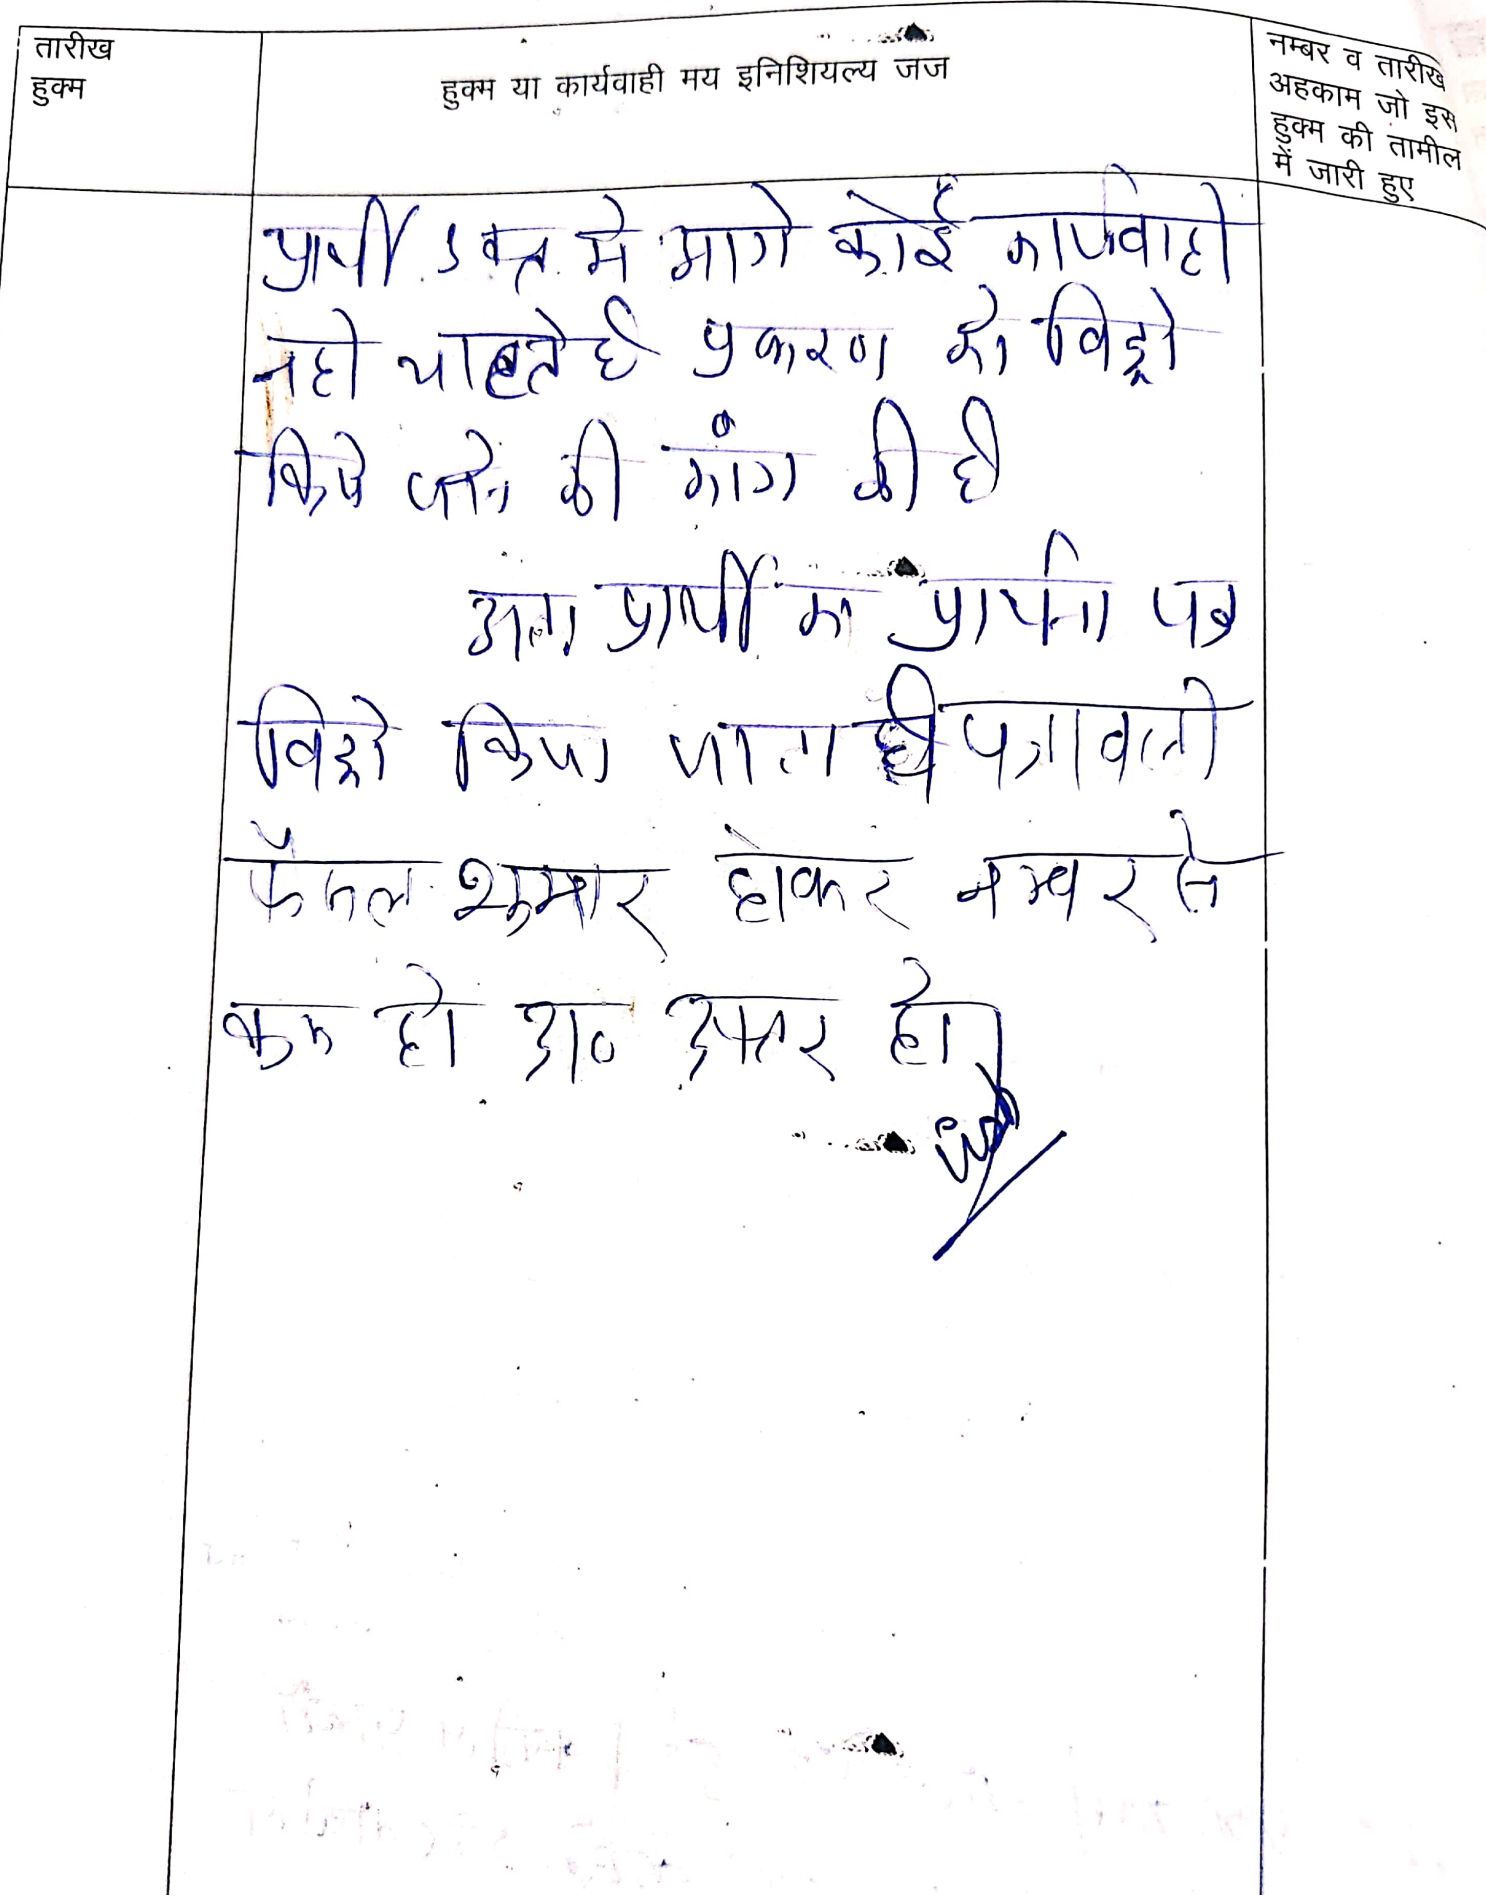 तारीख
हुक्म
हुक्म या कार्यवाही मय इनिशियल्य जज
नम्बर व तारीख
अहकाम जो इस
हुक्म की तामील
में जारी हुए
प्रार्थी उक्त में आगे कोई कार्यवाही
नही चाहते है प्रकरण को विड्रो
किये जाने की मांग की है
अतः प्रार्थी का प्रार्थना पत्र
विड्रो किया जाता है पत्रावली
फैसल शुमार होकर नम्बर से
कम हो दा० दफ्तर हो